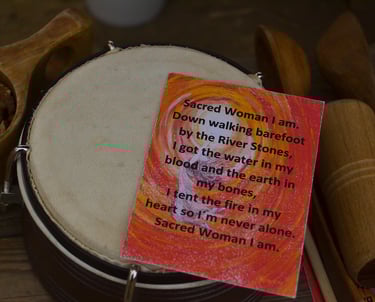 Sacred Woman I am.
Down walking barefoot
by the River Stones,
I got the water in my
blood and the earth in
my bones,
I tent the fire in my
heart so I'm never alone.
Sacred Woman I am.